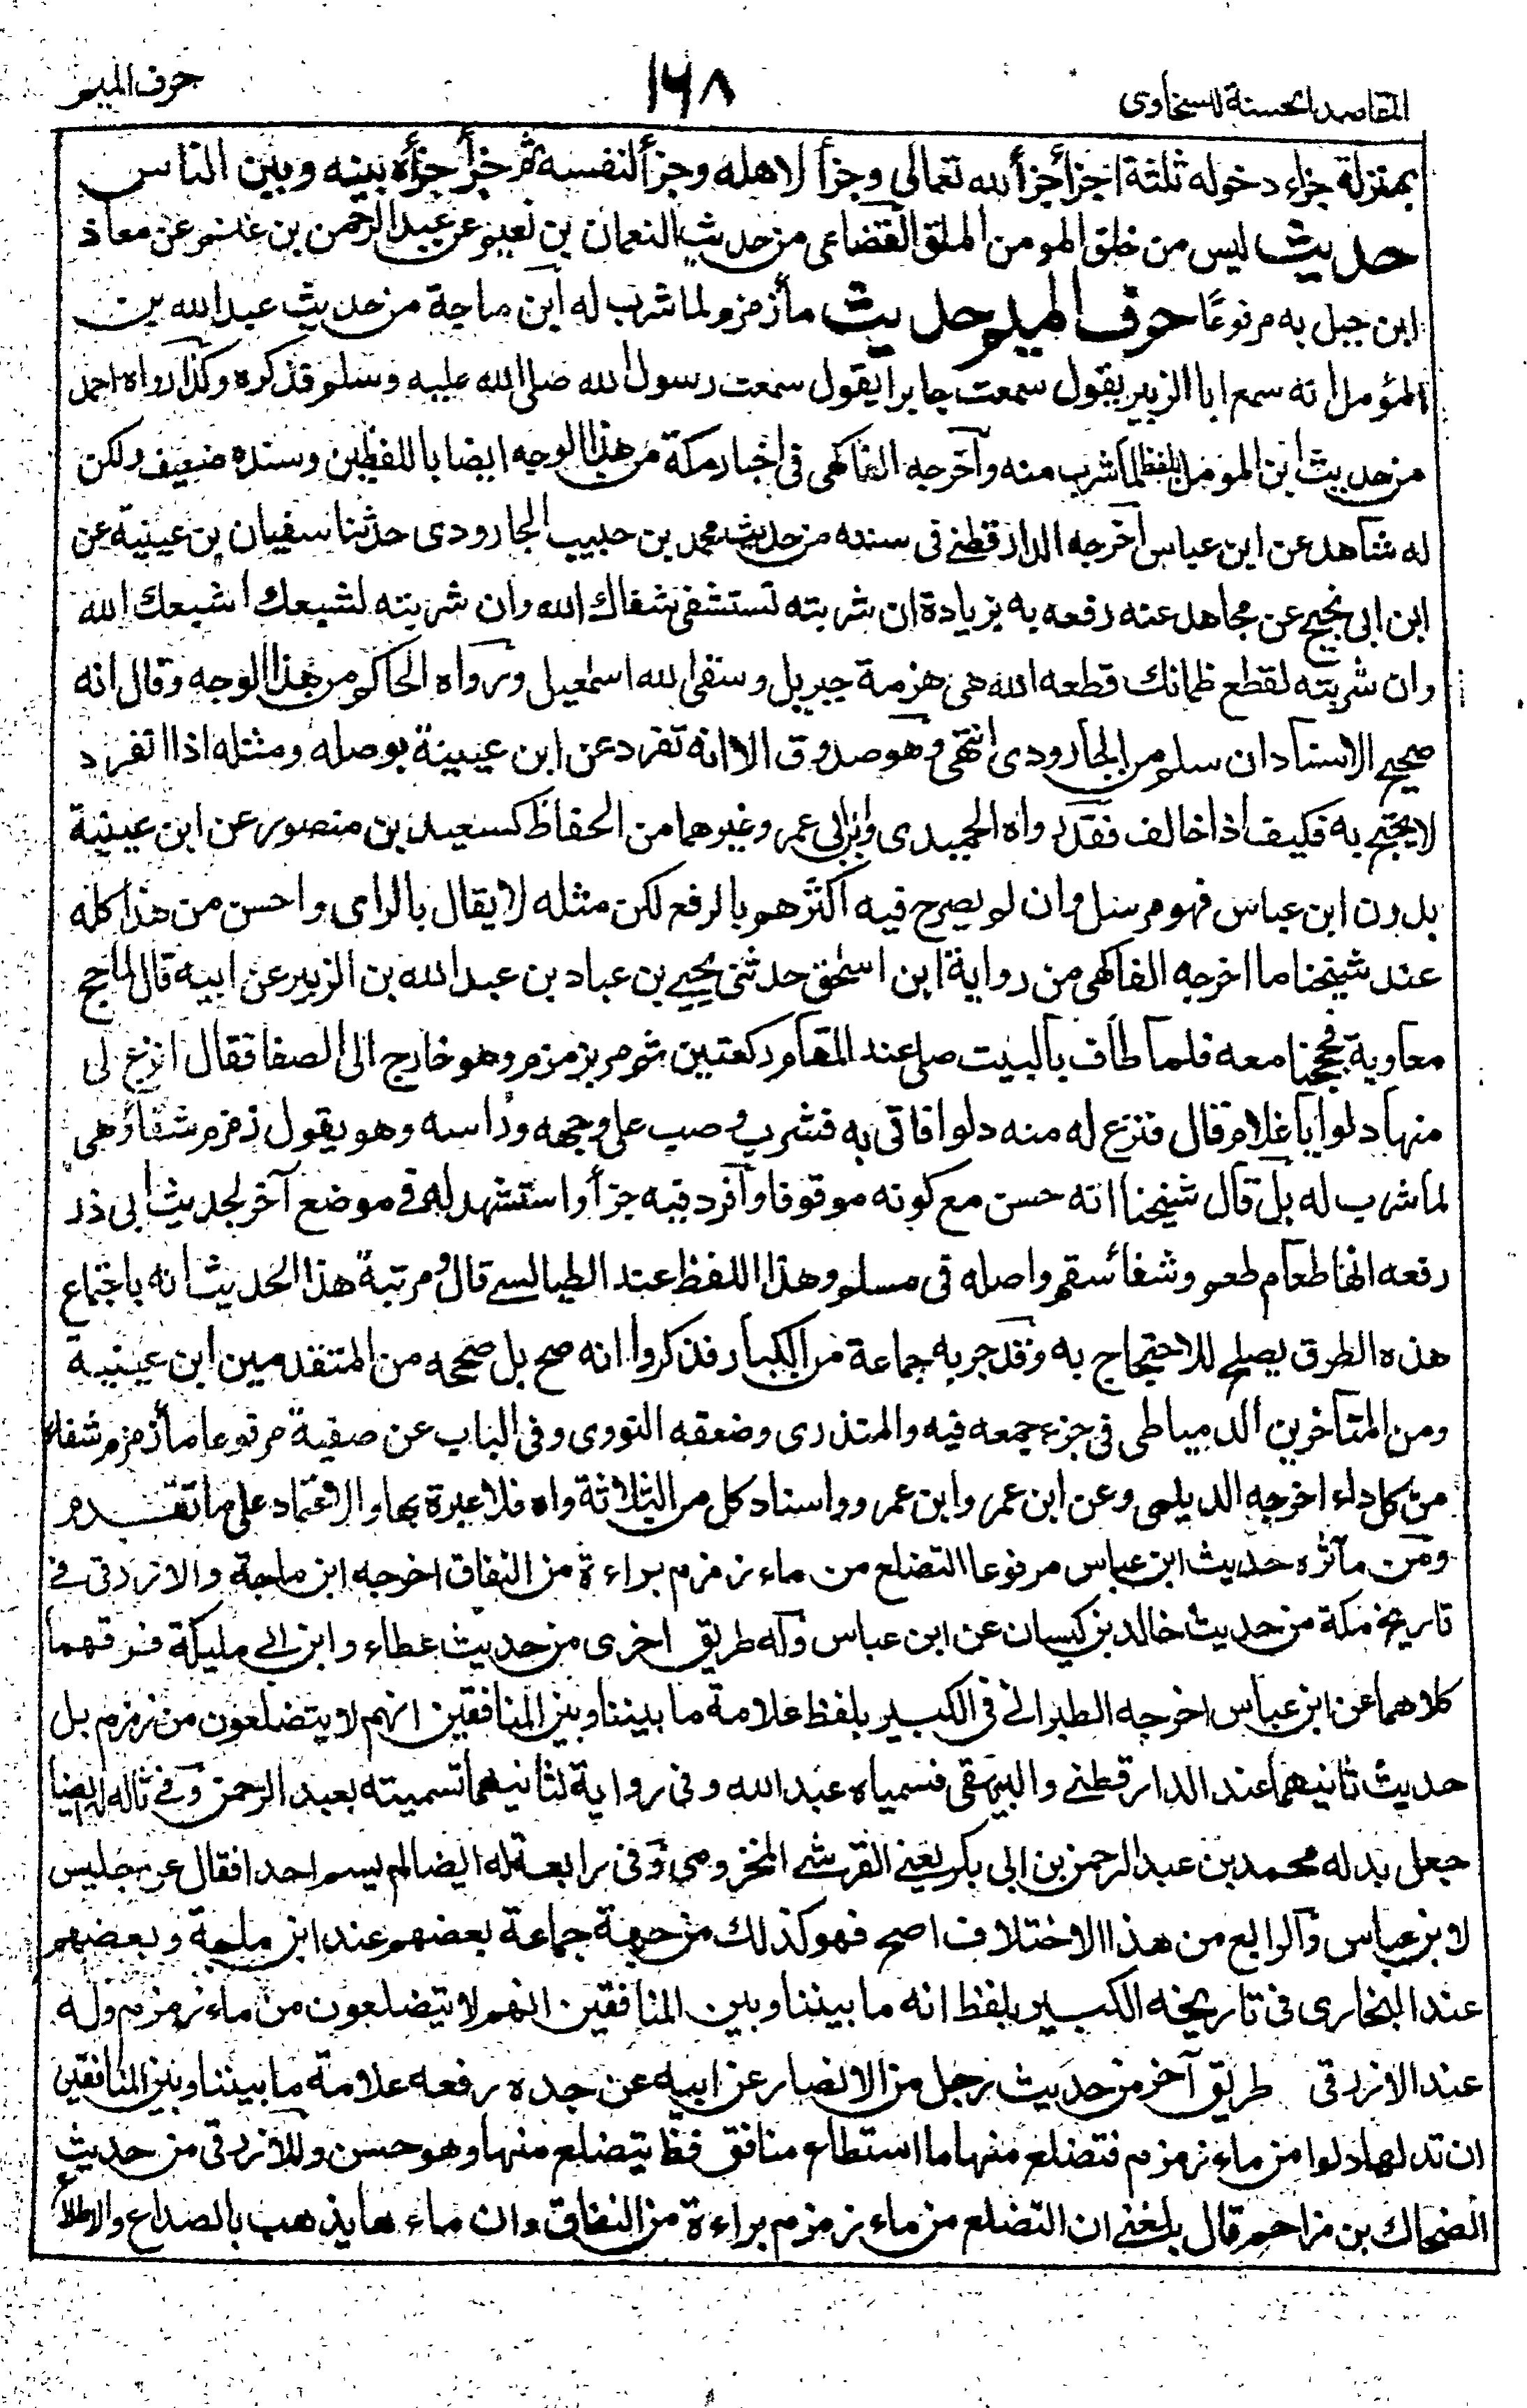 المقاصد الحسنة للسخاوى
١٦٨
حرف الميم
بمنزلة جزاء دخوله ثلثة اجزأ جزأ لله تعالى وجزأ لاهله وجزأ لنفسه ثم جزأ جزأه بينه وبين الناس
حديث ليس من خلق المومن الملق القضاعى من حديث النعمان بن نعيم عن عبد الرحمن بن غنم عن معاذ
ابن جبل به مرفوعًا حرف الميم حديث مأزمزم لما شرب له ابن ماجة من حديث عبد الله بن
المؤمل انه سمع ابا الزبير يقول سمعت جابرا يقول سمعت رسول الله صلى الله عليه وسلم فذكره وكذا رواه احمد
من حديث ابن المومل بلفظ لما شرب منه وآخرجه الفاكهى فى اخبار مكة من هذا الوجه ايضا باللفظين وسنده ضعيف ولكن
له شاهد عن ابن عباس آخرجه الدارقطنے فى سننه من حديث محمد بن حبيب الجارودى حدثنا سفيان بن عيينة عن
ابن ابى نجيح عن مجاهد عنه رفعه به بزيادة ان شربته تستشفى شفاك الله وان شربته لشبعك اشبعك الله
وان شربته لقطع ظمانك قطعه الله هى هزمة جبريل وسقى الله اسمعيل ورواه الحاكم من هذا الوجه وقال انه
صحيح الاسناد ان سلم من الجارودى انتهى وهو صدوق الا انه تفرد عن ابن عيينة بوصله ومثله اذا انفرد
لا يحتج به فكيف اذا خالف فقد رواه الحميدى وابن ابى عمر وغيرهما من الحفاظ كسعيد بن منصور عن ابن عيينة
بدون ابن عباس فهو مرسل وان لم يصرح فيه اكثرهم بالرفع لكن مثله لا يقال بالراى واحسن من هذا كله
عند شيخنا ما اخرجه الفاكهى من رواية ابن اسحق حدثنى يحيے بن عباد بن عبد الله بن الزبير عن ابيه قال لما حج
معاوية فحججنا معه فلما طاف بالبيت صلى عند المقام ركعتين ثم مر بزمزم وهو خارج الى الصفا فقال انزع لى
منها دلوا يا غلام قال فنزع له منه دلوا فاتى به فشرب وصب على وجهه وراسه وهو يقول زمزم شفاؤهى
لما شرب له بل قال شيخنا انه حسن مع كونه موقوفا وآفرد فيه جزأ واستشهد له فى موضع آخر بحديث ابى ذر
رفعه انها طعام طعم وشفأ سقم واصله فى مسلم وهذا اللفظ عند الطيالسے قال ومرتبة هذا الحديث انه باجتماع
هذه الطرق يصلح للاحتجاج به وقد جربه جماعة من الكبار فذكروا انه صح بل صححه من المتقدمين ابن عيينة
ومن المتاخرين الدمياطى فى جزء جمعه فيه والمنذرى وضعفه النووى وفى الباب عن صفية مرفوعا مأزمزم شفاء
من كل داء اخرجه الديلمى وعن ابن عمر وابن عمرو واسناد كل من الثلاثة واه فلا عبرة بها والاعتماد على ما تقدم
ومن مآثره حديث ابن عباس مرفوعا التضلع من ماء زمزم براءة من النفاق اخرجه ابن ماجة والازرقى فے
تاريخ مكة من حديث خالد بن كيسان عن ابن عباس وله طريق اخرى من حديث عطاء وابن ابے مليكة فرقهما
كلاهما عن ابن عباس اخرجه الطبرانے فى الكبير بلفظ علامة ما بيننا وبين المنافقين انهم لا يتضلعون من زمزم بل
حديث ثانيهما عند الدارقطنے والبيهقى فسمياه عبد الله وفى رواية لثانيهما تسميته بعبد الرحمن وفے ثالثة له ايضا
جعل بدله محمد بن عبد الرحمن بن ابى بكر يعنے القرشے المخزومى وفى رابعة له ايضا لم يسم احدا فقال عن جليس
لابن عباس وآلرابع من هذا الاختلاف اصح فهو كذلك من جهة جماعة بعضهم عند ابن ماجة وبعضهم
عند البخارى فى تاريخه الكبير بلفظ انه ما بيننا وبين المنافقين انهم لا يتضلعون من ماء زمزم وله
عند الازرقى طريق آخر من حديث رجل من الانصار عن ابيه عن جده رفعه علامة ما بيننا وبين المنافقين
ان تدلها دلوا من ماء زمزم فتضلع منها ما استطاع منافق قط يتضلع منها وهو حسن وللازرقى من حديث
الضحاك بن مزاحم قال بلغنے ان التضلع من ماء زمزم براءة من النفاق وان ماء ها يذهب بالصداع والاطلاع